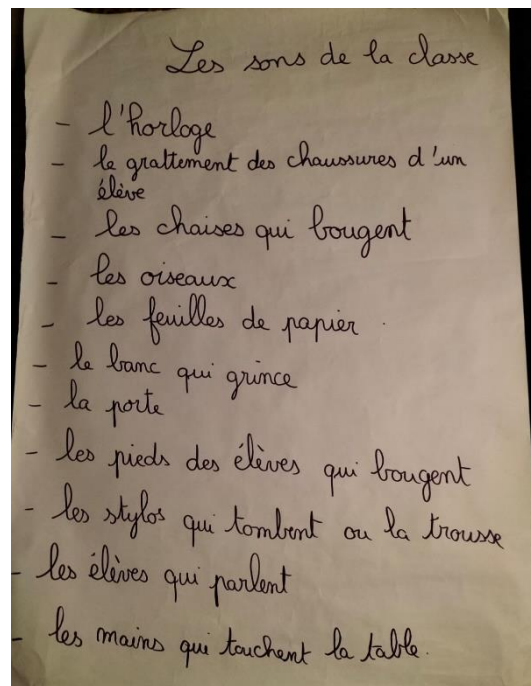 Les sons de la classe
- l'horloge
- le grattement des chaussures d'un
élève
- les chaises qui bougent
- les oiseaux
- les feuilles de papier.
- le banc qui grince
- la porte
- les pieds des élèves qui bougent
- les stylos qui tombent ou la trousse
- les élèves qui parlent
- les mains qui touchent la table.